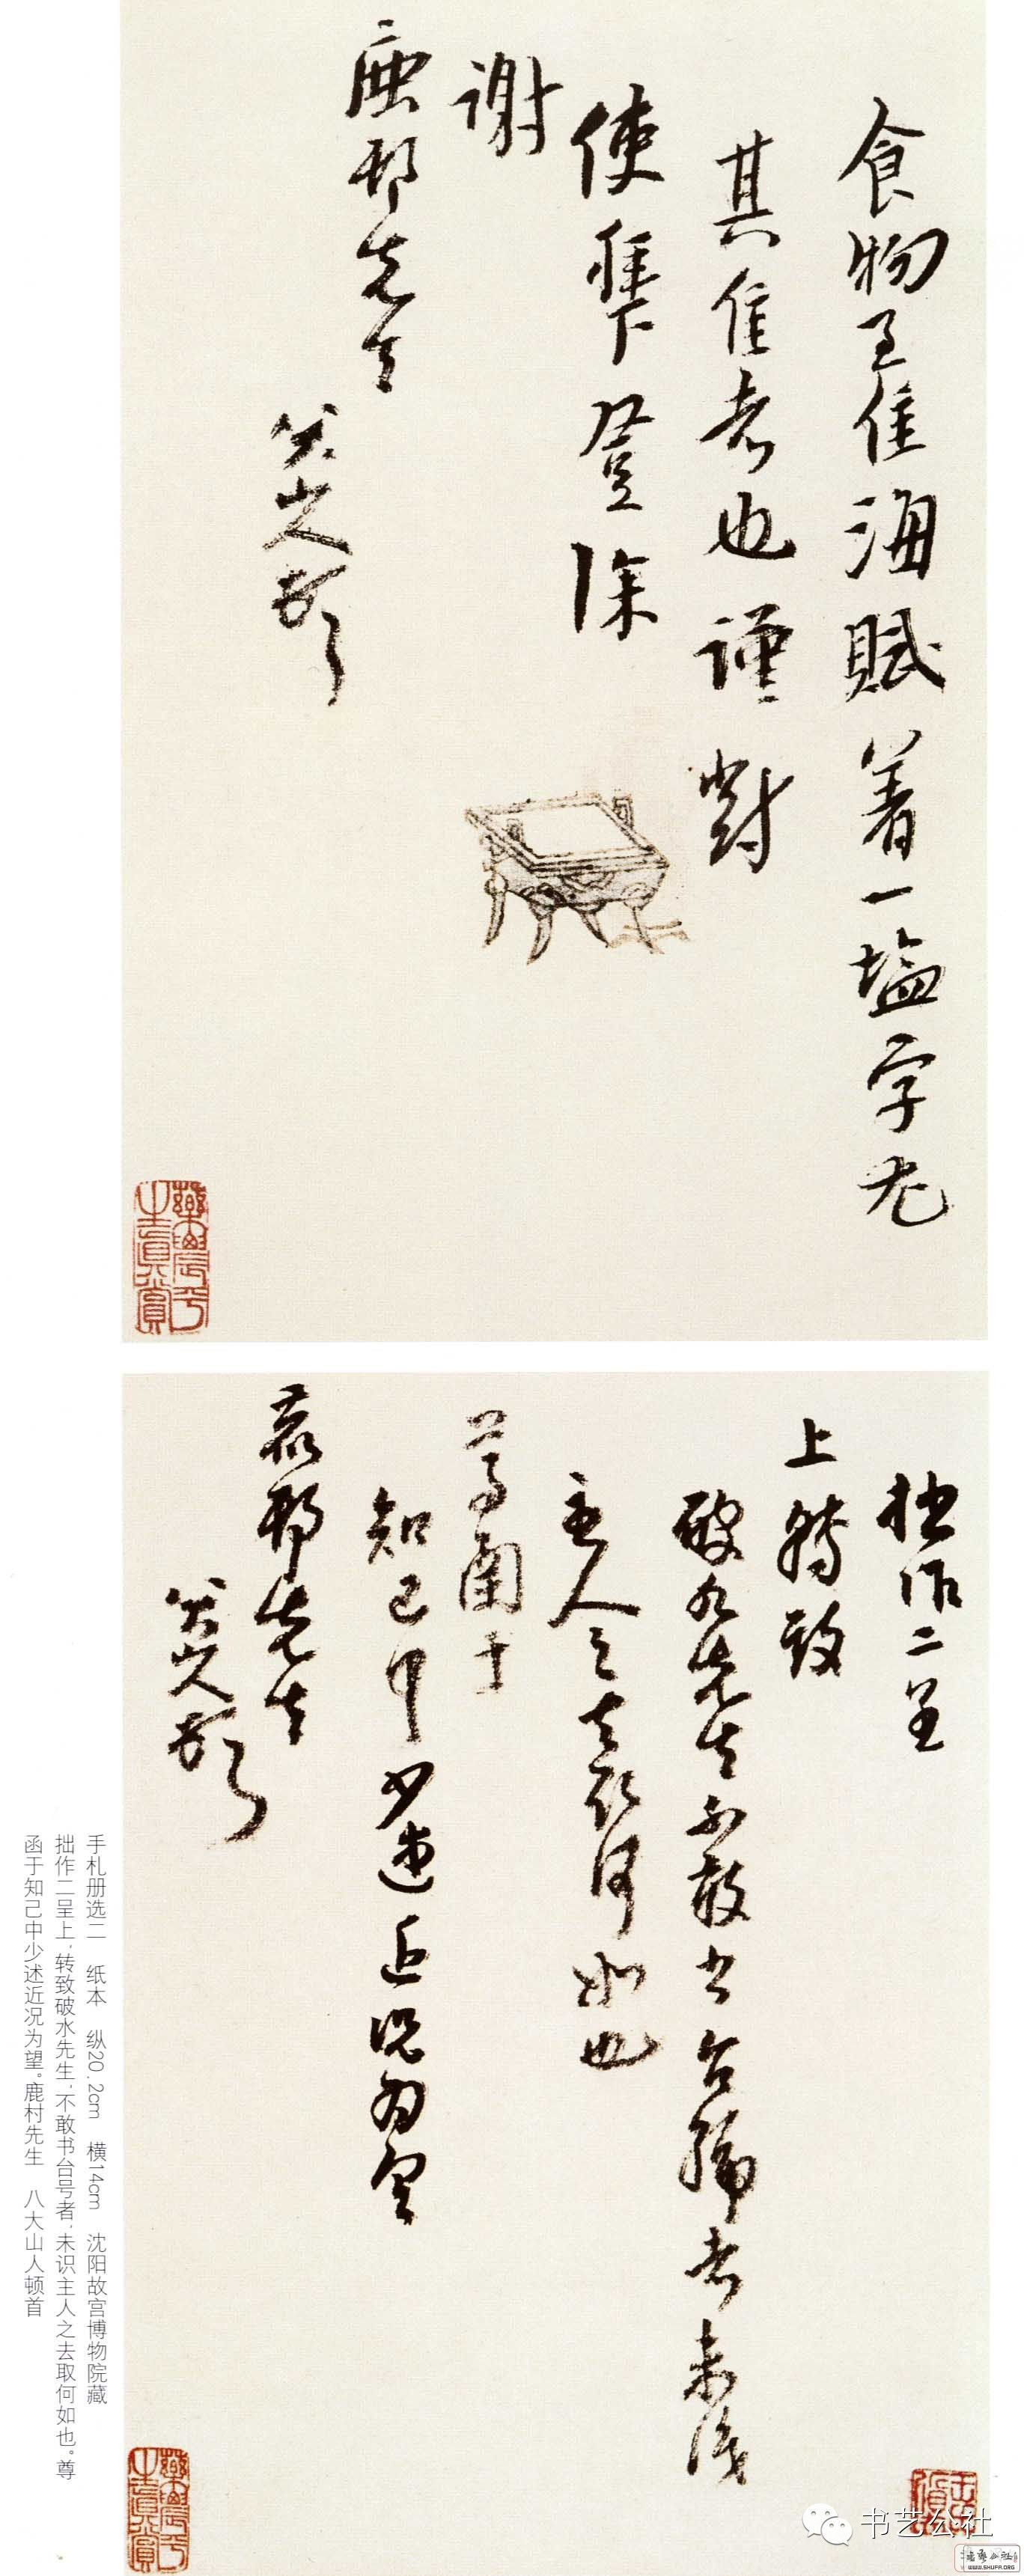 食物至佳海賦著一塩字尤
其佳者也謹對
使拜登深
謝
鹿邨先生
八大山人頓首
拙作二呈
上轉致
破水先生不敢书台號者未識
主人之去取何如也
尊函于
知己中少述近况为望
鹿邨先生
八大山人頓首
手札册选二 纸本 纵20.2cm 横14cm 沈阳故宫博物院藏
拙作二呈上,转致破水先生,不敢书台号者,未识主人之去取何如也。尊
函于知己中少述近况为望。鹿村先生 八大山人顿首
书艺公社
www.SHUFA.ORG